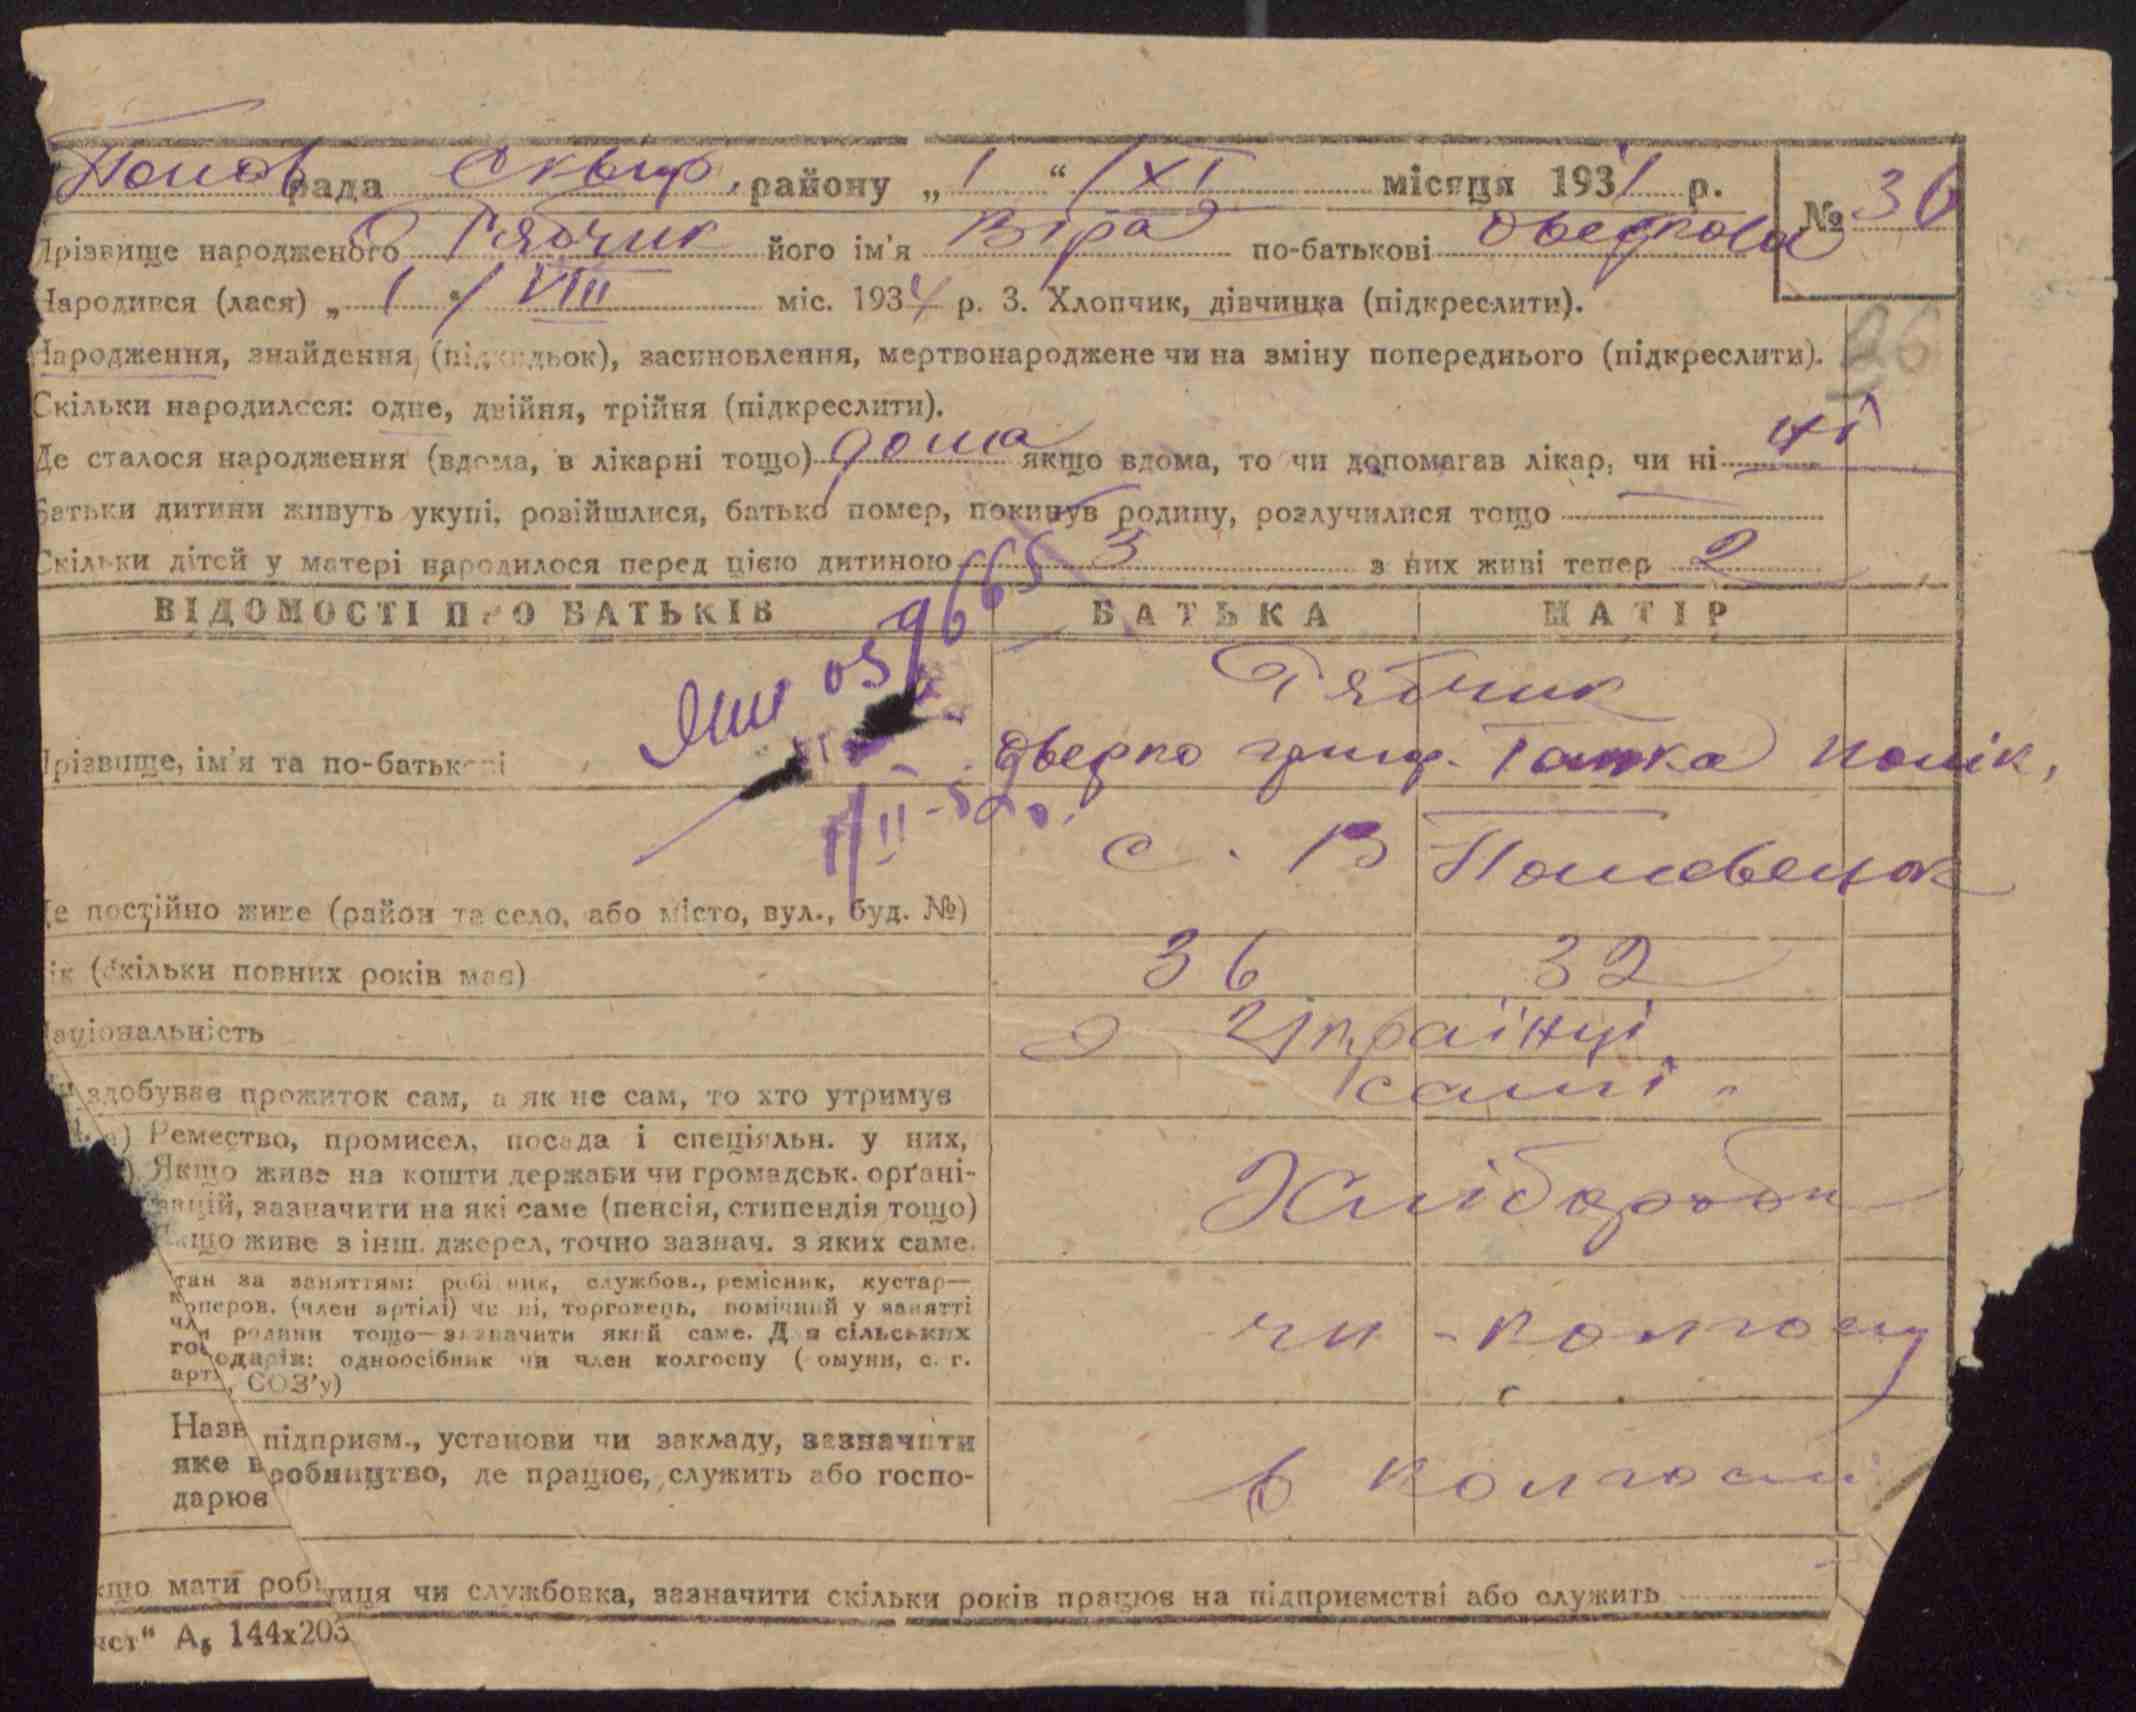 Попов рада Сквир. району „1“ / XI місяця 1934 р. № 36
Прізвище народженого Рябчик його ім'я Віра по-батькові Оверкова
Народився (лася) „1“ / VIII міс. 1934 р. 3. Хлопчик, дівчинка (підкреслити).
26
Народження, знайдення (підкидьок), засиновлення, мертвонароджене чи на зміну попереднього (підкреслити).
Скільки народилося: одне, двійня, трійня (підкреслити).
Де сталося народження (вдома, в лікарні тощо) дома якщо вдома, то чи допомагав лікар, чи ні ні
Батьки дитини живуть укупі, розійшлися, батько помер, покинув родину, розлучилися тощо
Скільки дітей у матері народилося перед цією дитиною 3 з них живі тепер 2
ВІДОМОСТІ ПРО БАТЬКІВ БАТЬКА МАТІР
Рябчик
Прізвище, ім'я та по-батькові Оверко григ. Ганка
с. В
Де постійно живе (район та село, або місто, вул., буд. №)
Вік (скільки повних років має) 36 32
Національність Українці
Чи здобуває прожиток сам, а як не сам, то хто утримує самі
а) Ремество, промисел, посада і спеціяльн. у них,
Якщо живе на кошти держави чи громадськ. орґані-
зацій, зазначити на які саме (пенсія, стипендія тощо)
Якщо живе з інш. джерел, точно зазнач. з яких саме.
Хлібороби
тан за заняттям: робітник, службов., ремісник, кустар—
коперов. (член артілі) чи ні, торговець, помічний у занятті
член родини тощо—зазначити який саме. Для сільських
господарів: одноосібник чи член колгоспу (комуни, с. г.
арт., СОЗ'у)
чл - колгоспу
Назв підприєм., установи чи закладу, зазначити
яке виробництво, де працює, служить або госпо-
дарює
в колгоспі
якщо мати робітниця чи службовка, зазначити скільки років працює на підприємстві або служить
ист“ А5 144х203